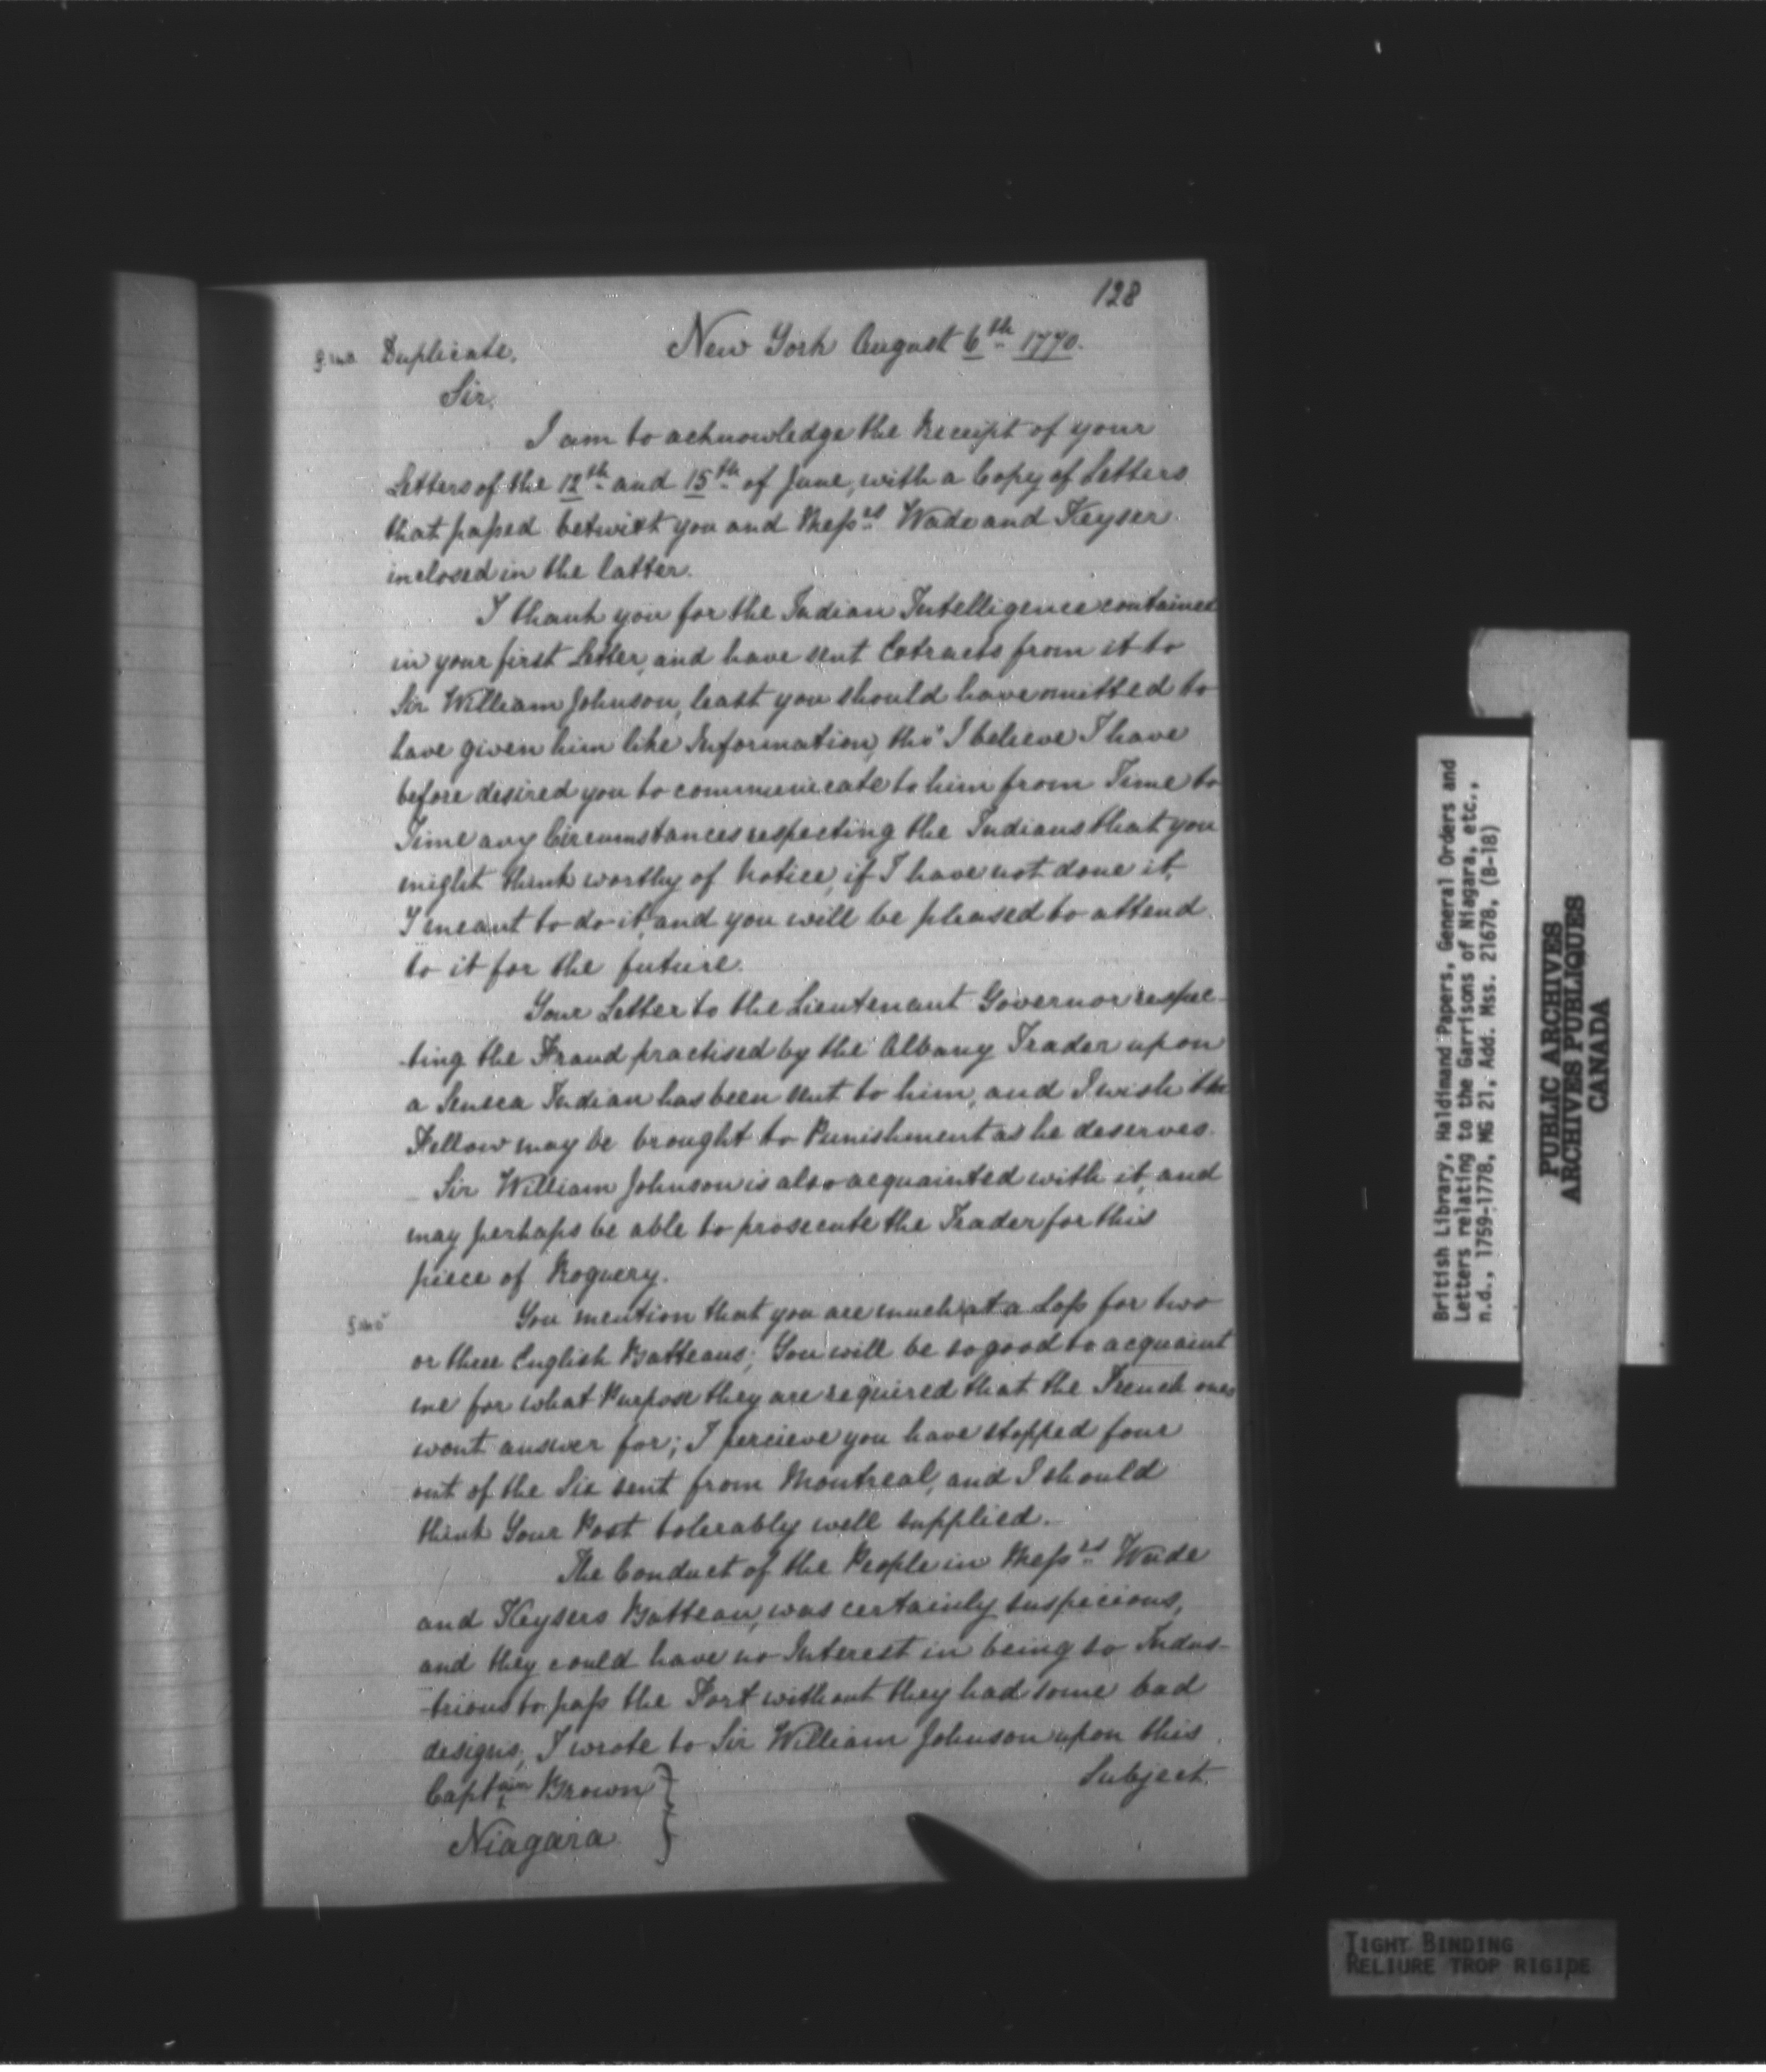 128
Duplicate. New York August 6th 1770.
Sir,
I am to acknowledge the Receipt of your
Letters of the 12th and 15th of June, with a Copy of Letters
that paſsed betwixt you and Meſsrs Wade and Keyser
inclosed in the latter.
I thank you for the Indian Intelligence contained
in your first Letter, and have sent Extracts from it to
Sir William Johnson, least you should have omitted to
have given him like Information, tho' I believe I have
before desired you to communicate to him from Time to
Time any Circumstances respecting the Indians that you
might think worthy of Notice, if I have not done it,
I meant to do it, and you will be pleased to attend
to it for the future.
Your Letter to the Lieutenant Governor respec-
-ting the Fraud practised by the Albany Trader upon
a Seneca Indian has been sent to him, and I wish the
Fellow may be brought to Punishment as he deserves.
Sir William Johnson is also acquainted with it, and
may perhaps be able to prosecute the Trader for this
piece of Roguery.
You mention that you are much at a Loſs for two
or three English Batteaus; You will be so good to acquaint
me for what Purpose they are required that the French ones
wont answer for; I percieve you have stopped four
out of the Six sent from Montreal, and I should
think Your Post tolerably well supplied.
The Conduct of the People in Meſsrs Wade
and Keysers Batteau, was certainly suspicious,
and they could have no Interest in being so Indus-
-trious to paſs the Fort without they had some bad
designs, I wrote to Sir William Johnson upon this
Subject
Captain Brown
Niagara
British Library, Haldimand Papers, General Orders and
Letters relating to the Garrisons of Niagara, etc.,
n.d., 1759-1778, MG 21, Add. Mss. 21678, (B-18)
PUBLIC ARCHIVES
ARCHIVES PUBLIQUES
CANADA
TIGHT BINDING
RELIURE TROP RIGIDE